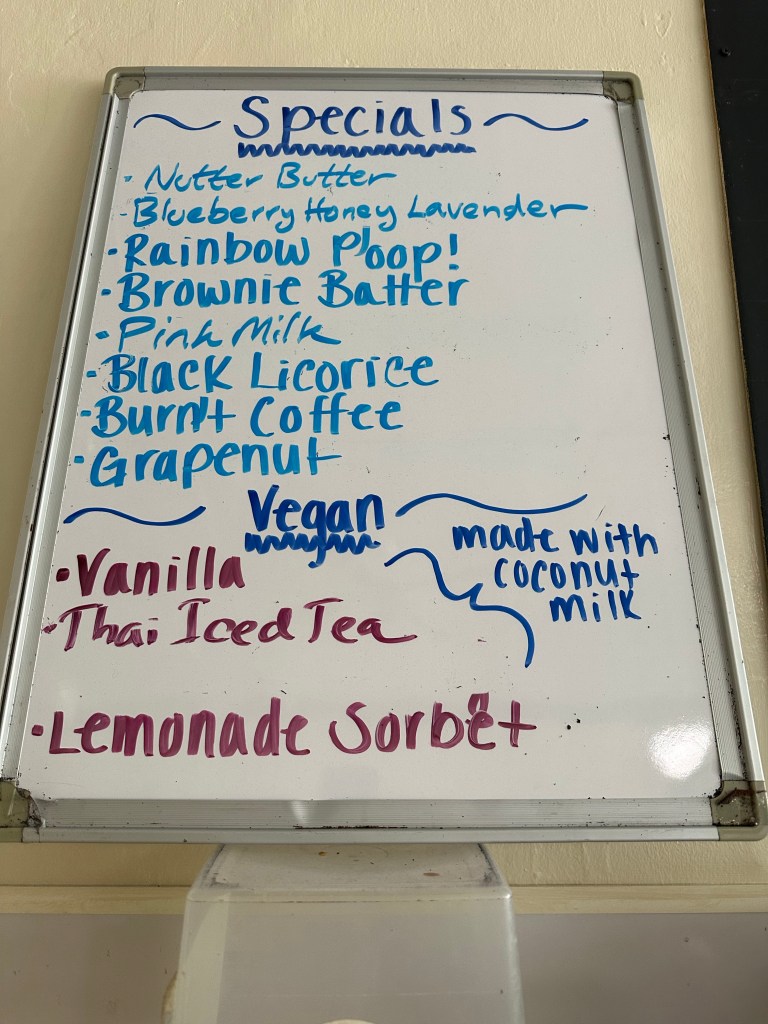 ~ Specials ~
· Nutter Butter
· Blueberry Honey Lavender
· Rainbow P'oop!
· Brownie Batter
· Pink Milk
· Black Licorice
· Burn't Coffee
· Grapenut
~ Vegan ~
made with
coconut
milk
· Vanilla
· Thai Iced Tea
· Lemonade Sorbët